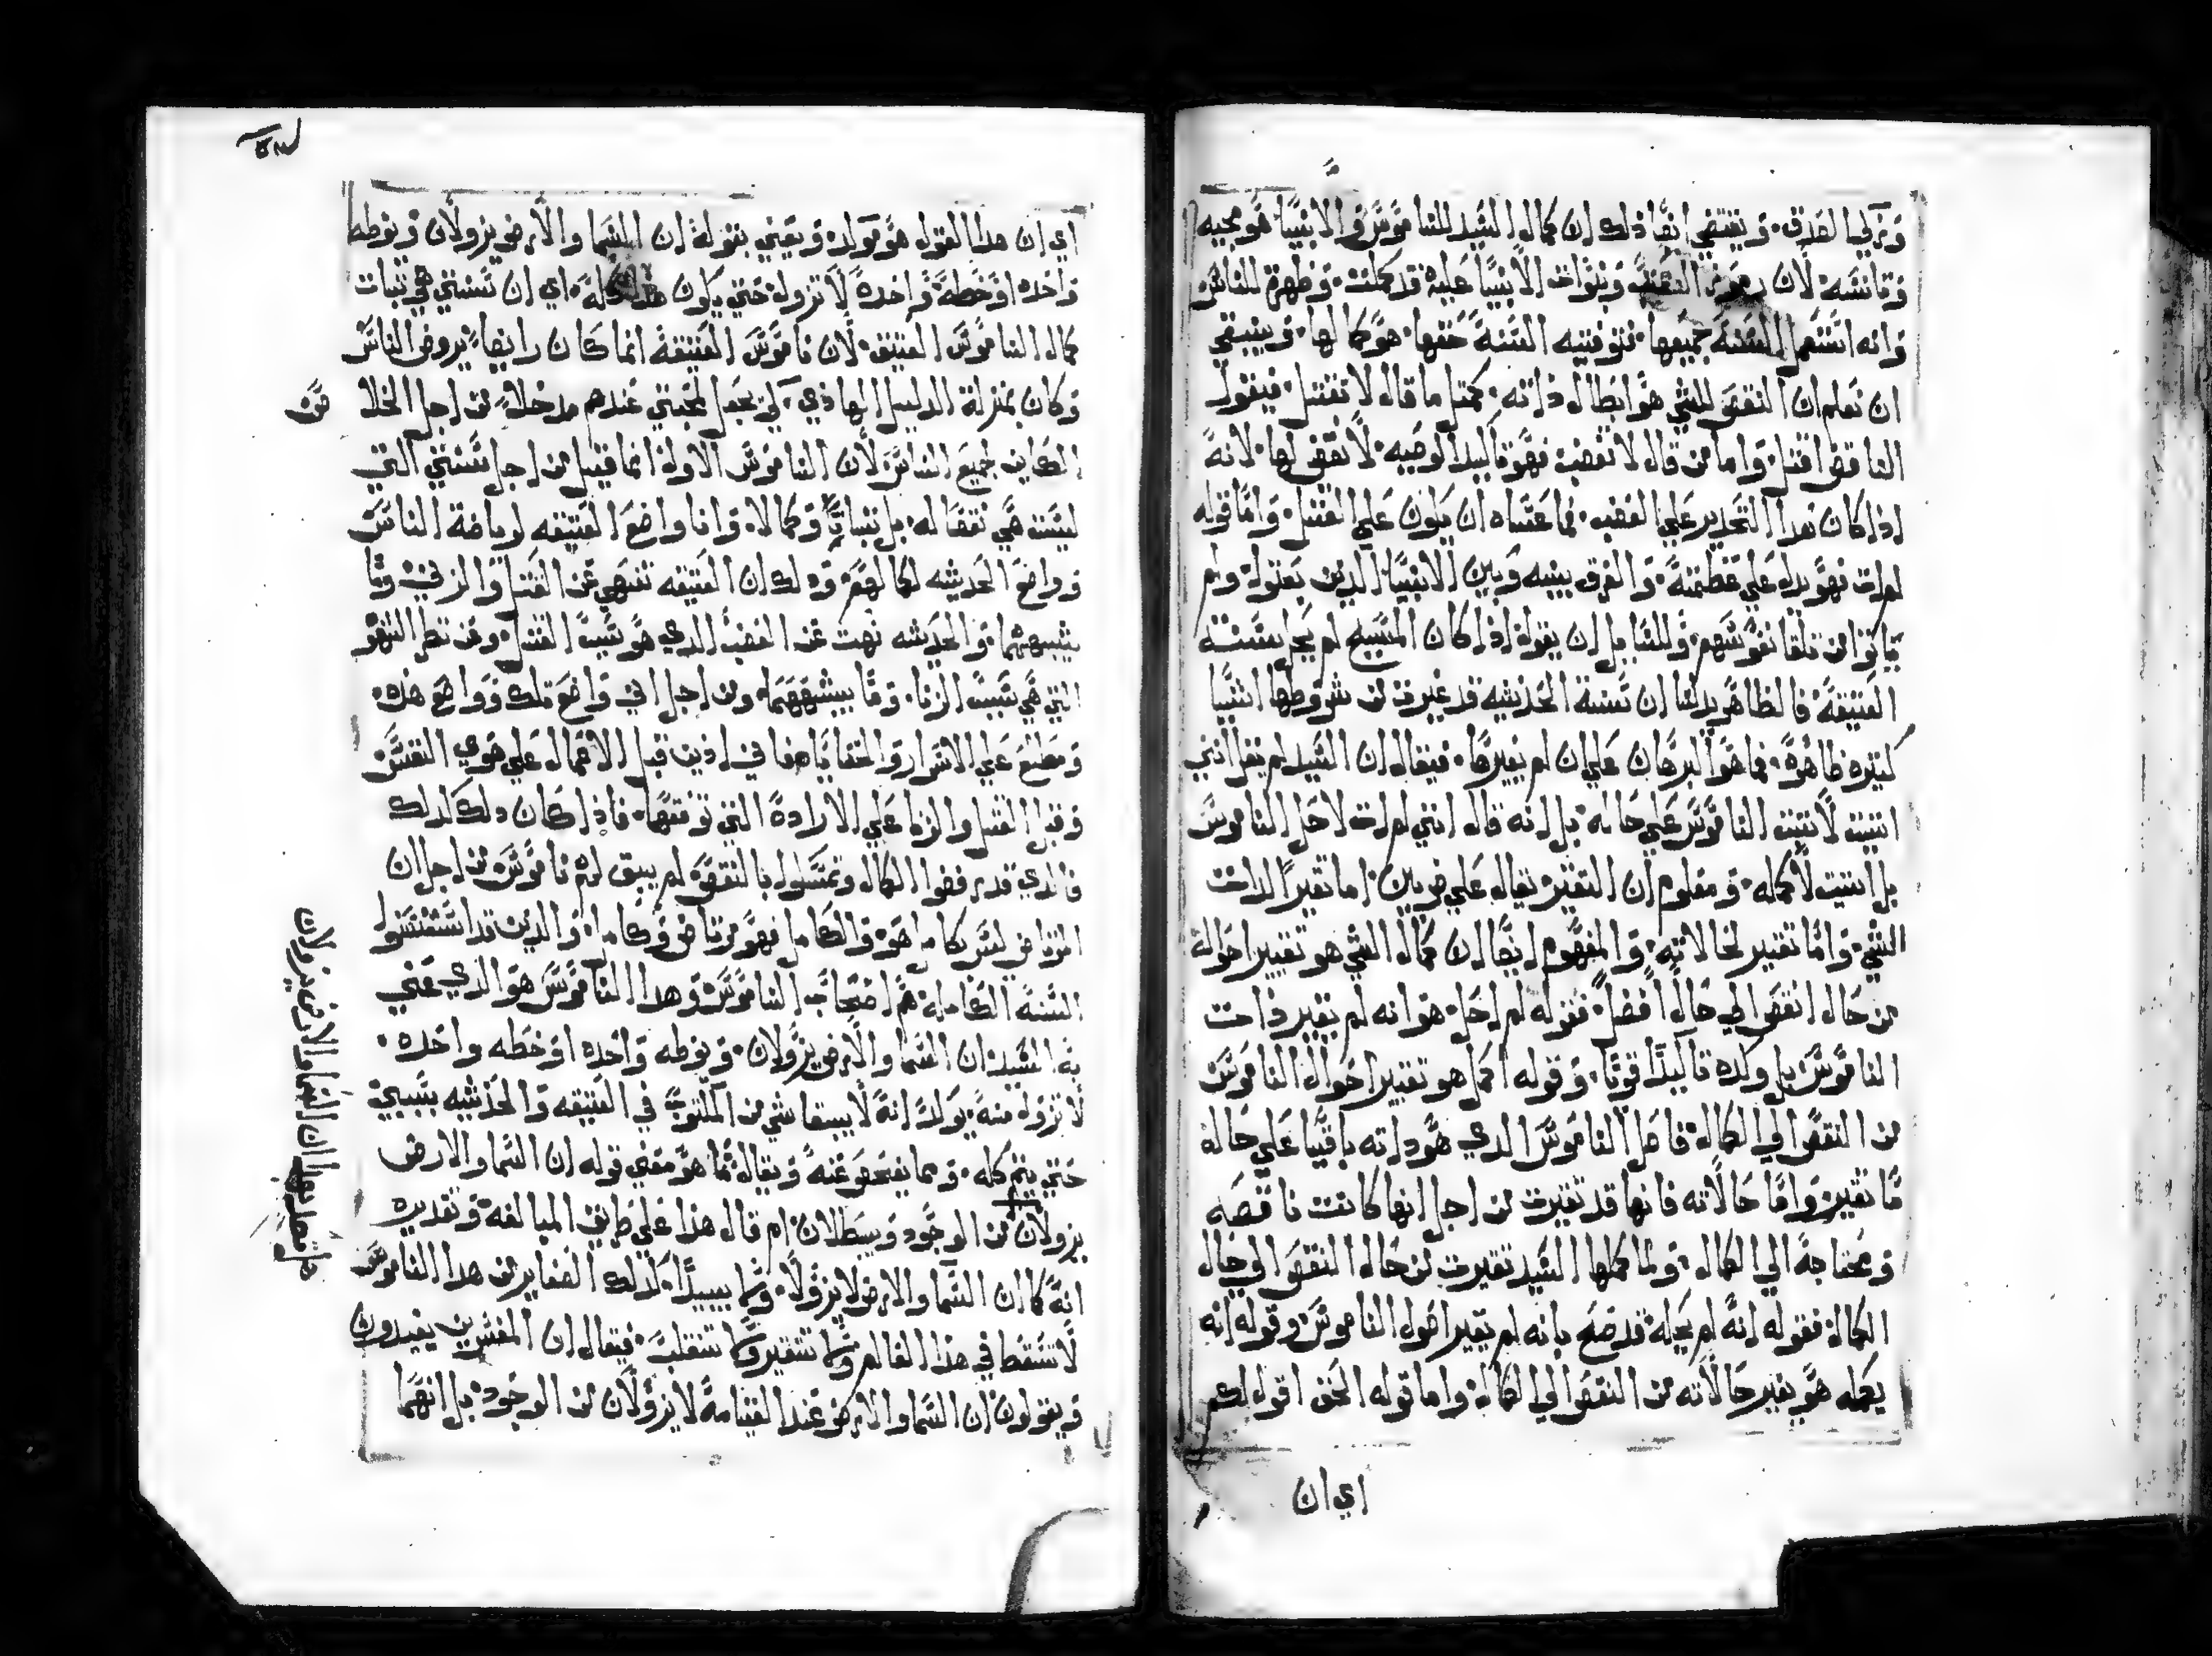 وتزكي الصدق. ويقتضي ايضًا ذلك ان كمال السيد للناموس والانبيا هو مجيه
وتانسه لان رموز العتيقه ونبوات الانبيا عليه قد كملت. وظهرة للناس
وانه استعمل السنة جميعها. فتوفيته السنة حقها. هو كمالها. وينبغي
ان تعلم ان النقض للشي هو ابطال ذاته. كمثل ما قال لا تقتل. فيقول
الناقض اقتل. واما من قال لا تغضب فهو تاكيدا لوصيه. لا نقض لها. لانه
اذا كان هدا التحدير علي الغضب. فما عساه ان يكون علي القتل. واما قوله
لم ات فهو يدل علي عظمته. والفرق بينه وبين الانبيا الدين بعتوا. ولم
ياتوا من تلقا نفوسهم. وللقايل ان يقول اذا كان المسيح لم يحل بسنته
العتيقة فالظاهر يدلنا ان سنته الحديثه قد غيرت من شروطها اشيا
كتيره ظاهرة. فما هو البرهان علي ان لم يغيرها. فيقال ان السيد لم يقل انني
اتيت لاتبت الناموس علي حاله. بل انه قال انني لم ات لاحل الناموس
بل اتيت لاكمله. ومعلوم ان التغيير يقال علي ضربين. اما تغيير لدات
الشي. واما تغيير لحالاته. والمفهوم ايضًا ان كمال الشي هو تغيير احواله
من حال انقص الي حال افضل. فقوله لم احل. هو انه لم يغيير ذات
الناموس بل ولده تاكيدًا قويًا. وقوله اكمل هو تغيير احوال الناموس
من النقص الي الكمال. فاصل الناموس الدي هو داته باقيًا علي حاله
ما تغير. واما حالاته فانها قد تغيرت من اجل انها كانت ناقصه
ومحتاجة الي الكمال. ولما كملها السيد تغيرت من حال النقص الي حال
الكمال. فقوله انه لم يحله قد صح بانه لم يغير اصول الناموس وقوله انه
يكمله هو يغير حالاته من النقص الي الكمال. واما قوله الحق اقول لكم
اي ان
اي ان هدا القول هو موكد. ويعني بقوله ان السما والارض يزولان ونوطه
واحده او خطة واحدة لا تزول حتي يكون هدا كله. اي ان سنتي هي تبات
كمال الناموس العتيق. لان ناموس العتيقة انما كان رايضًا يروض الناس
وكان بمنزلة الدليل الهادي. لكي يجعل لمحبتي عندهم مدخلا. من اجل الخلاص
الكاين لجميع الناس. لان الناموس الاول انما قيل من اجل سنتي التي
ليست هي نقضا له. بل تباتًا وكمالا. وانا واضع العتيقه لرياضة الناس
وواضع الحديثه لكمالهم. ودلك ان العتيقه تنهي عن القتل والزني. وما
يشبههما. والحديثه نهت عن الغضب الدي هو سبب القتل. وعن نظر الشهوه
التي هي سبب الزنا. وما يشبههما. ومن اجل اني واضع تلك وواضع هذه.
ومطلع علي الاسرار والخفايا
وقبل القتل والزنا علي الارادة التي توقعها. فاذا كان دلك كدلك
فالدي قد رفضوا الكمال وتمسكوا بالنقص لم يبق لهم ناموس من اجل ان
المرتاض ليس بكامل هو. والكامل فهو مرتاض وكامل. والدين قد استعملوا
السنة الكاملة هم اصحاب الناموس. وهدا الناموس هو الدي عني
به السيد ان السما والارض يزولان. ونوطه واحده او خطه واحده.
لا تزول منه. يوكد انه لا يبقا شي من المكتوب في العتيقه والحديثه
حتي يتم كله. ومما يفحص عنه ويقال ما هو معني قوله ان السما والارض
يزولان من الوجود ويبطلان. ام قال هدا علي طريق المبالغه وتقديره
انه كما ان السما والارض لا يزولا. وما يبيدا. كدلك الصغاير من هدا الناموس
لا تسقط في هدا العالم وما تتغير وما تنقلب. فيقال ان المفسرين يفيدون
ويقولون ان السما والارض عند القيامة لا يزولان من الوجود. بل انهما
هل تعلم معني ان السما والارض يزولان